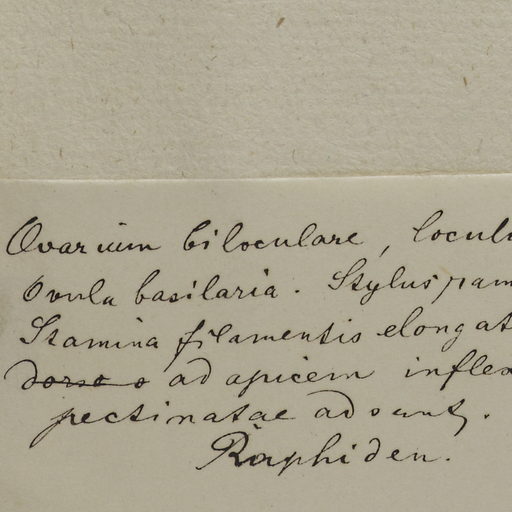 Ovarium biloculare, locul
Ovula basilaria. Stylus ram
Stamina filamentis elongat
dorso ad apicem inflex
pectinatae adsunt.
Raphiden.